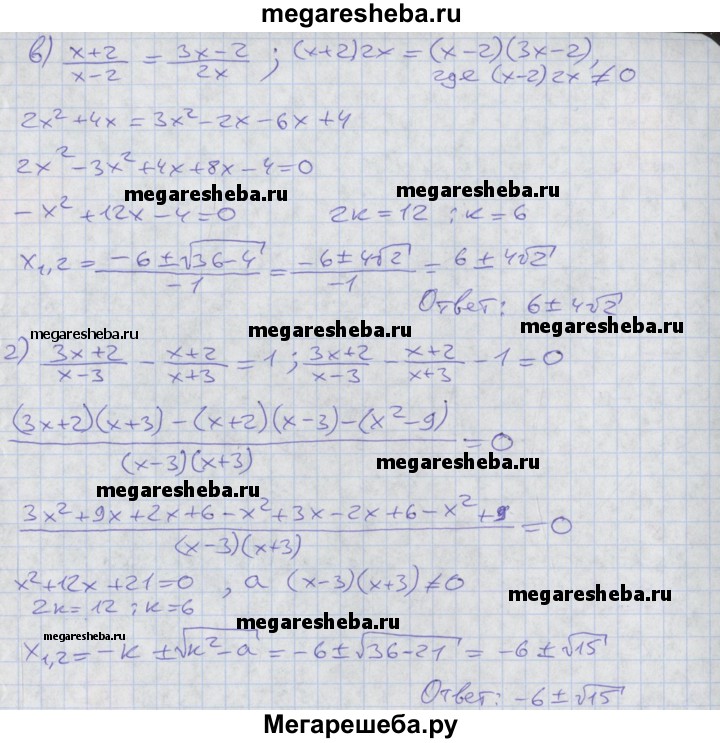 megaresheba.ru
в) (x+2)/(x-2) = (3x-2)/(2x) ; (x+2)2x = (x-2)(3x-2),
где (x-2)2x ≠ 0
2x²+4x = 3x²-2x-6x+4
2x²-3x²+4x+8x-4=0
megaresheba.ru megaresheba.ru
-x²+12x-4=0 2k=12 ; k=6
x₁,₂ = (-6±√(36-4))/(-1) = (-6±4√2)/(-1) = 6±4√2
Ответ: 6±4√2
megaresheba.ru megaresheba.ru megaresheba.ru
г) (3x+2)/(x-3) - (x+2)/(x+3) = 1 ; (3x+2)/(x-3) - (x+2)/(x+3) - 1 = 0
((3x+2)(x+3)-(x+2)(x-3)-(x²-9))/((x-3)(x+3)) = 0
megaresheba.ru
megaresheba.ru
(3x²+9x+2x+6-x²+3x-2x+6-x²+9)/((x-3)(x+3)) = 0
x²+12x+21=0 , а (x-3)(x+3)≠0
2k=12 ; k=6
megaresheba.ru megaresheba.ru
x₁,₂ = -k ± √(k²-a) = -6±√(36-21) = -6±√15
Ответ: -6±√15
Мегарешеба.ру